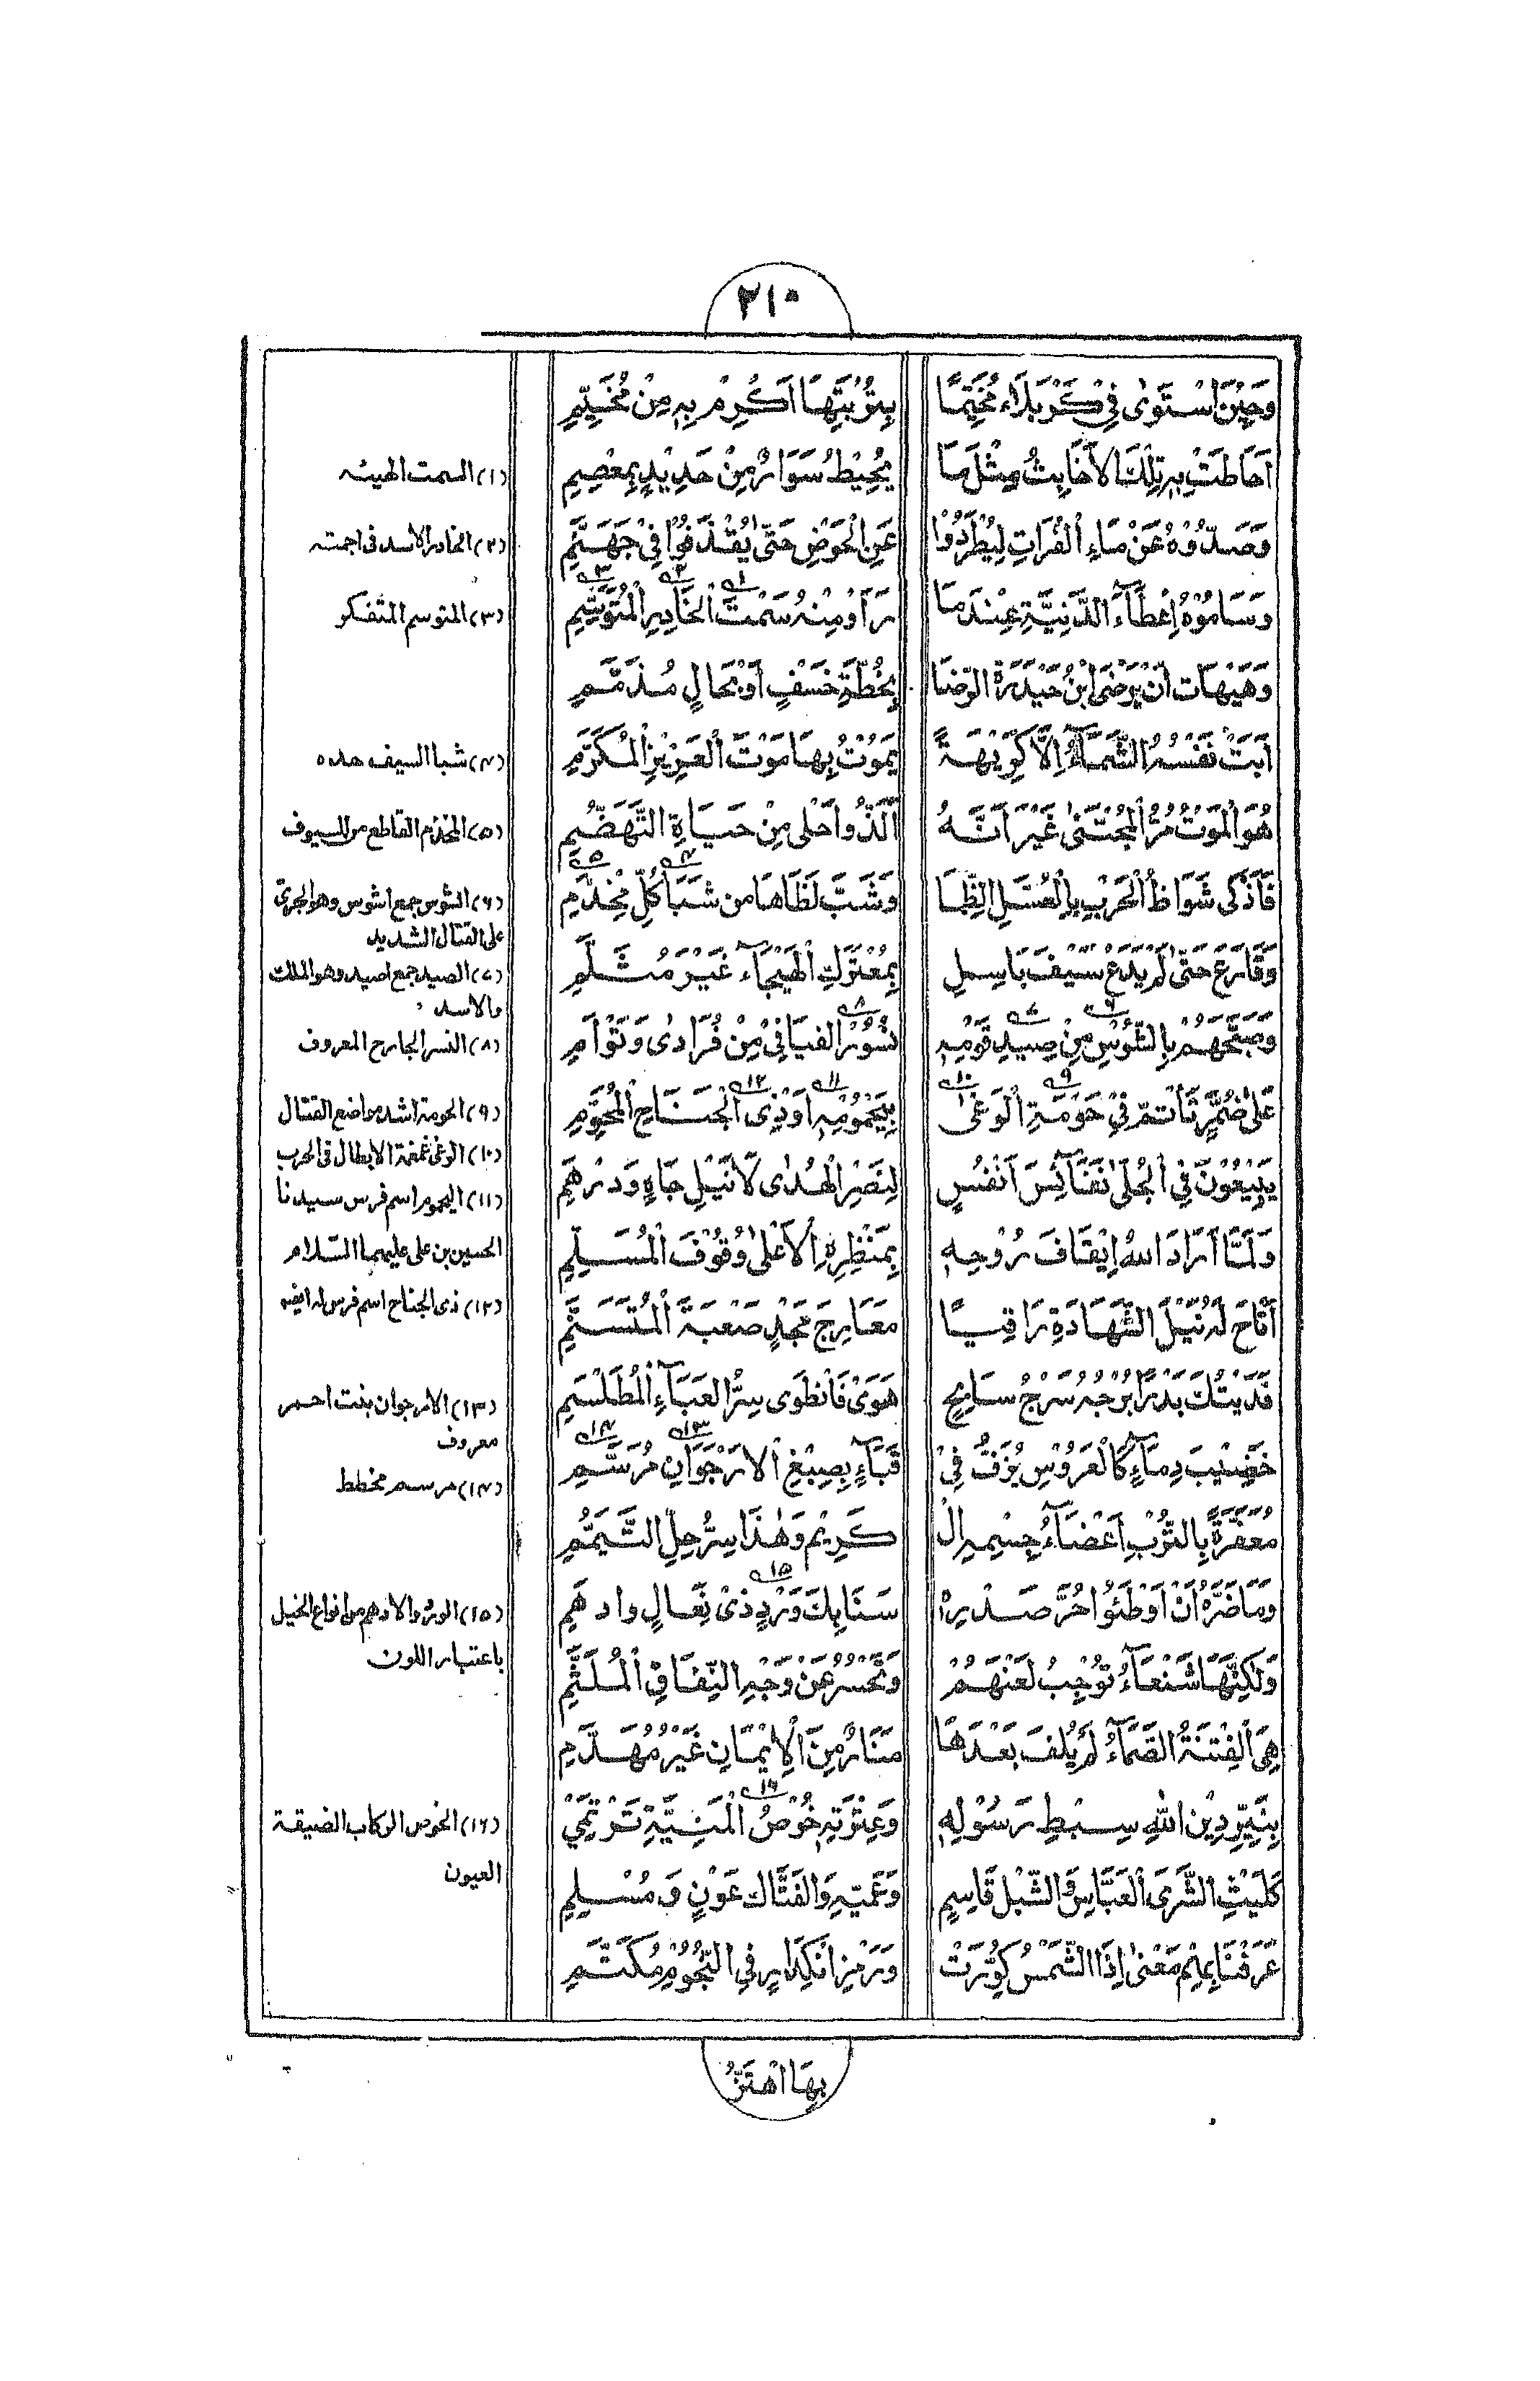 ٢١٠
وَحِيْنَ اسْتَوٰى فِيْ كَرْبَلَاءَ مُخَيِّمًا بِتُرْبَتِهَا اَكْرِمْ بِهٖ مِنْ مُخَيِّمٖ
اَحَاطَتْ بِهٖ تِلْكَ الْاَخَابِثُ مِثْلَ مَا يُحِيْطُ سَوَارٌ مِنْ حَدِيْدٍ بِمِعْصِمِ
وَصَدُّوْهُ عَنْ مَاءِ الْفُرَاتِ لِيُطْرَدُوْا عَنِ الْحَوْضِ حَتّٰى يُقْذَفُوْا فِيْ جَهَنَّمِ
وَسَامُوْهُ اِعْطَآءَ الدَّنِيَّةِ عِنْدَ مَا رَاَوْ مِنْهُ سَمْتَ الْخَادِرِ الْمُتَوَسِّمِ
وَهَيْهَات اَنْ يَرْضَى ابْنُ حَيْدَرَةَ الرِّضَا بِخُطَّةِ خَسْفٍ اَوْ بِحَالٍ مُذَمَّمِ
اَبَتْ نَفْسُهُ الشَّمَّآءُ اِلَّا كَرِيْهَةً يَمُوْتُ بِهَا مَوْتَ الْعَزِيْزِ الْمُكَرَّمِ
هُوَ الْمَوْتُ مُرُّ الْمُجْتَنٰى غَيْرَ اَنَّهُ اَلَذُّ وَاَحْلٰى مِنْ حَيَاةِ التَّهَضُّمِ
فَاَذْكٰى شَوَاظُ الْحَرْبِ بِالْعُسَّلِ الظِّمَا وَشَبَّ لَظَاهَا من شَبَا كُلِّ مِخْذَمِ
وَقَارَعَ حَتّٰى لَمْ يَدَعْ سَيْفَ بَاسِلٍ بِمُعْتَرَكِ الْهَيْجَآءِ غَيْرَ مُثَلَّمِ
وَصَبَّحَهُمْ بِالشُّوْسِ مِنْ صِيْدِ قَوْمِهٖ نُسُوْرُ الفَيَافِيْ مِنْ فُرَادٰى وَتَوْاَمِ
عَلٰى ضُمَّرٍ تَأتمّ فِيْ حَوْمَةِ الْوَغٰى بِيَحْمُوْمِهٖ اَوْ ذِى الْجَنَاحِ الْمُحَوِّمِ
يَبِيْعُوْنَ فِي الْجُلّٰى نَفَآئِسَ اَنْفُسٍ لِنَصْرِ الْهُدٰى لَا نَيْلِ جَاهٍ وَدِرْهَمِ
وَلَمَّا اَرَادَ اللهُ اِيْقَافَ رُوْحِهٖ بِمَنْظَرِهِ الْاَعْلٰى وُقُوْفَ الْمُسَلِّمِ
اَتَاحَ لَهُ نَيْلَ الشَّهَادَةِ رَاقِيًا مَعَارِجَ مَجْدٍ صَعْبَةَ الْمُتَسَنَّمِ
فَدَيْتُكَ بَدْرًا بُرْجُهُ سَرْجُ سَابِحٍ هَوَى فَانْطَوٰى سِرُّ العَبَآءِ الْمُطَلْسَمِ
خَضِيْبَ دِمَآءٍ كَالْعَرُوْسِ يُزَفُّ فِيْ قَبَآءٍ بِصِبْغِ الْارْجَوَانِ مُرَسَّمِ
مُعَفَّرَةً بِالتُّرْبِ اَعْضَآءُ جِسْمِهِ الْ كَرِيْمِ وَهٰذَا سِرُّ حِلِّ التَّيَمُّمِ
وَمَا ضَرَّهُ اَنْ اَوْطَئُوْا حُرَّ صَدْرِهٖ سَنَابِكَ وَرْدٍ ذِيْ نِعَالٍ وادهَمِ
وَلٰكِنَّهَا شَنْعَآءُ تُوْجِبُ لَعْنَهُمْ وَتَحْسُرُ عَنْ وَجْهِ النِّفَاقِ الْمُلَثَّمِ
هِيَ الْفِتْنَةُ الصَّمَّآءُ لَمْ يُلْفَ بَعْدَهَا مَنَارٌ مِنَ الْاِيْمَانِ غَيْرُ مُهَدَّمِ
بِنَيِّرِ دِيْنِ اللهِ سِبْطِ رَسُوْلِهٖ وَعِتْرَتِهٖ خُوْصُ الْمَنِيَّةِ تَرْتَمِيْ
كَلَيْثِ الشَّرَى الْعَبَّاسِ وَالشِّبْلِ قَاسِمٍ وَعَمَّيْهِ وَالفَتَّاكِ عَوْنٍ وَمُسْلِمِ
عَرَفْنَا بِهِمْ مَعْنٰى اِذَا الشَّمْسُ كُوِّرَتْ وَرَمْزَ انْكِدَارٍ فِي النُّجُوْمِ مُكَتَّمِ
(١) السمت الهيئه
(٢) الخادر الاسد فى اجمته
(٣) المتوسم المتفكر
(٤) شبا السيف حده
(٥) المخذم القاطع من السيوف
(٦) الشوس جمع اشوس وهو الجرئ
على القتال الشديد
(٧) الصيد جمع اصيد وهو الملك
والاسد
(٨) النسر الجارح المعروف
(٩) الحومة اشد مواضع القتال
(١٠) الوغى غمغمة الابطال فى الحرب
(١١) اليحموم اسم فرس سيدنا
الحسين بن على عليهما السّلام
(١٢) ذى الجناح اسم فرس له ايضه
(١٣) الارجوان بنت احمر
معروف
(١٤) مرسم مخطط
(١٥) الورد والادهم من انواع الخيل
باعتبار اللون
(١٦) الخوص الركاب الضيقة
العيون
بِهَا اهْتَزَّ